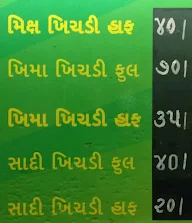 મિક્ષ ખિચડી હાફ ૪૦/
ખિમા ખિચડી ફુલ ૭૦/
ખિમા ખિચડી હાફ ૩૫/
સાદી ખિચડી ફુલ ૪૦/
સાદી ખિચડી હાફ ૨૦/